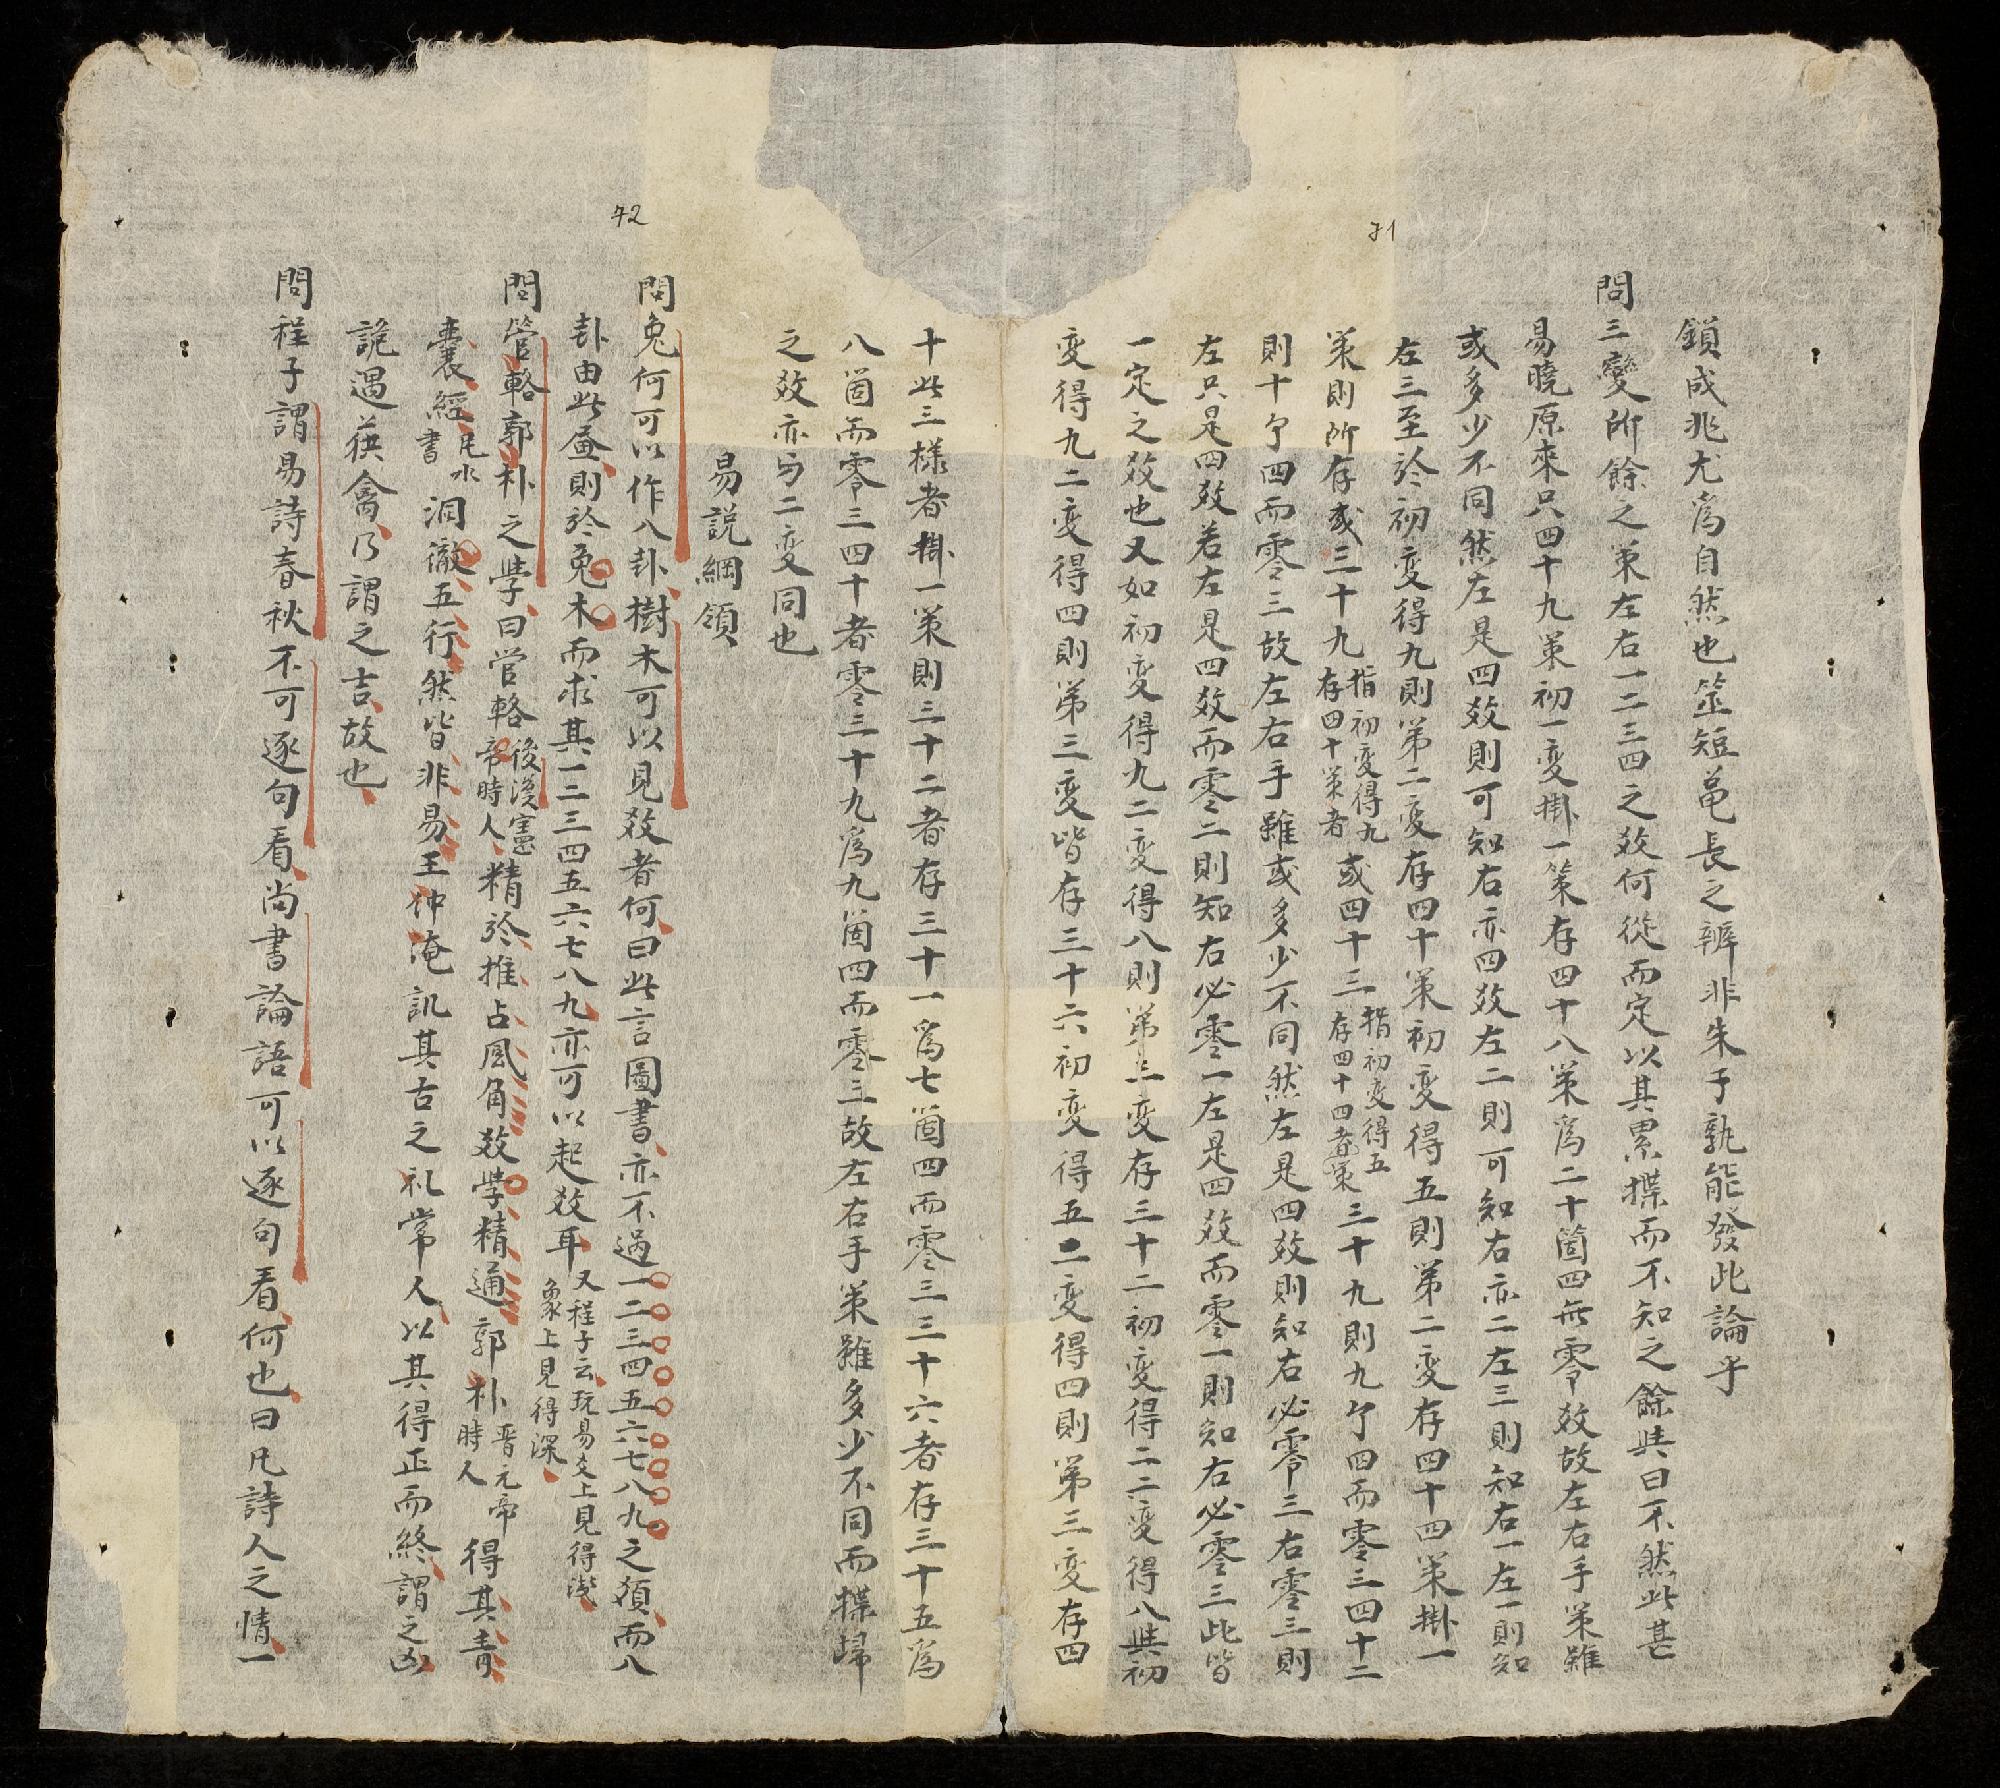 71
鎖成兆尤爲自然也筮短黽長之辨非朱子孰能發此論乎
問三變所餘之策左右一二三四之效何從而定以其累揲而不知之餘與曰不然此甚
易曉原來只四十九策初一变掛一策存四十八策爲二十箇四無零效故左右手策雖
或多少不同然左是四效則可知右亦四效左二則可知右亦二左三則知右一左一則知
右三至於初变得九則第二变存四十策初变得五則第二变存四十四策掛一
策則所存或三十九指初变得九存四十策者或四十三指初变得五存四十四者策三十九則九个四而零三四十二
則十个四而零三故左右手雖或多少不同然左是四效則知右必零三右零三則
左只是四效若左是四效而零二則知右必零一左是四效而零一則知右必零三此皆
一定之效也又如初变得九二变得八則第三变存三十二初变得二二变得八與初
变得九二变得四則第三变皆存三十六初变得五二变得四則第三变存四
十此三樣者掛一策則三十二者存三十一爲七箇四而零三三十六者存三十五爲
八箇而零三四十者零三十九爲九箇四而零三故左右手策雖多少不同而揲歸
之效亦与二变同也
易説綱領
72
問兔何可以作八卦樹木可以見效者何曰此言圖書亦不過一二三四五六七八九之須而八
卦由此畫則於兔木而求其一二三四五六七八九亦可以起效耳又程子云玩易爻上見得淺象上見得深
問管輅郭朴之學曰管輅後漢憲帝時人精於推占風角效學精通郭朴晋元帝時人得其青
囊經凡水書洞徹五行然皆非易王仲淹訊其古之礼常人以其得正而終謂之凶
詭遇获禽乃謂之吉故也
問程子謂易詩春秋不可逐句看尚書論語可以逐句看何也曰凡詩人之情一